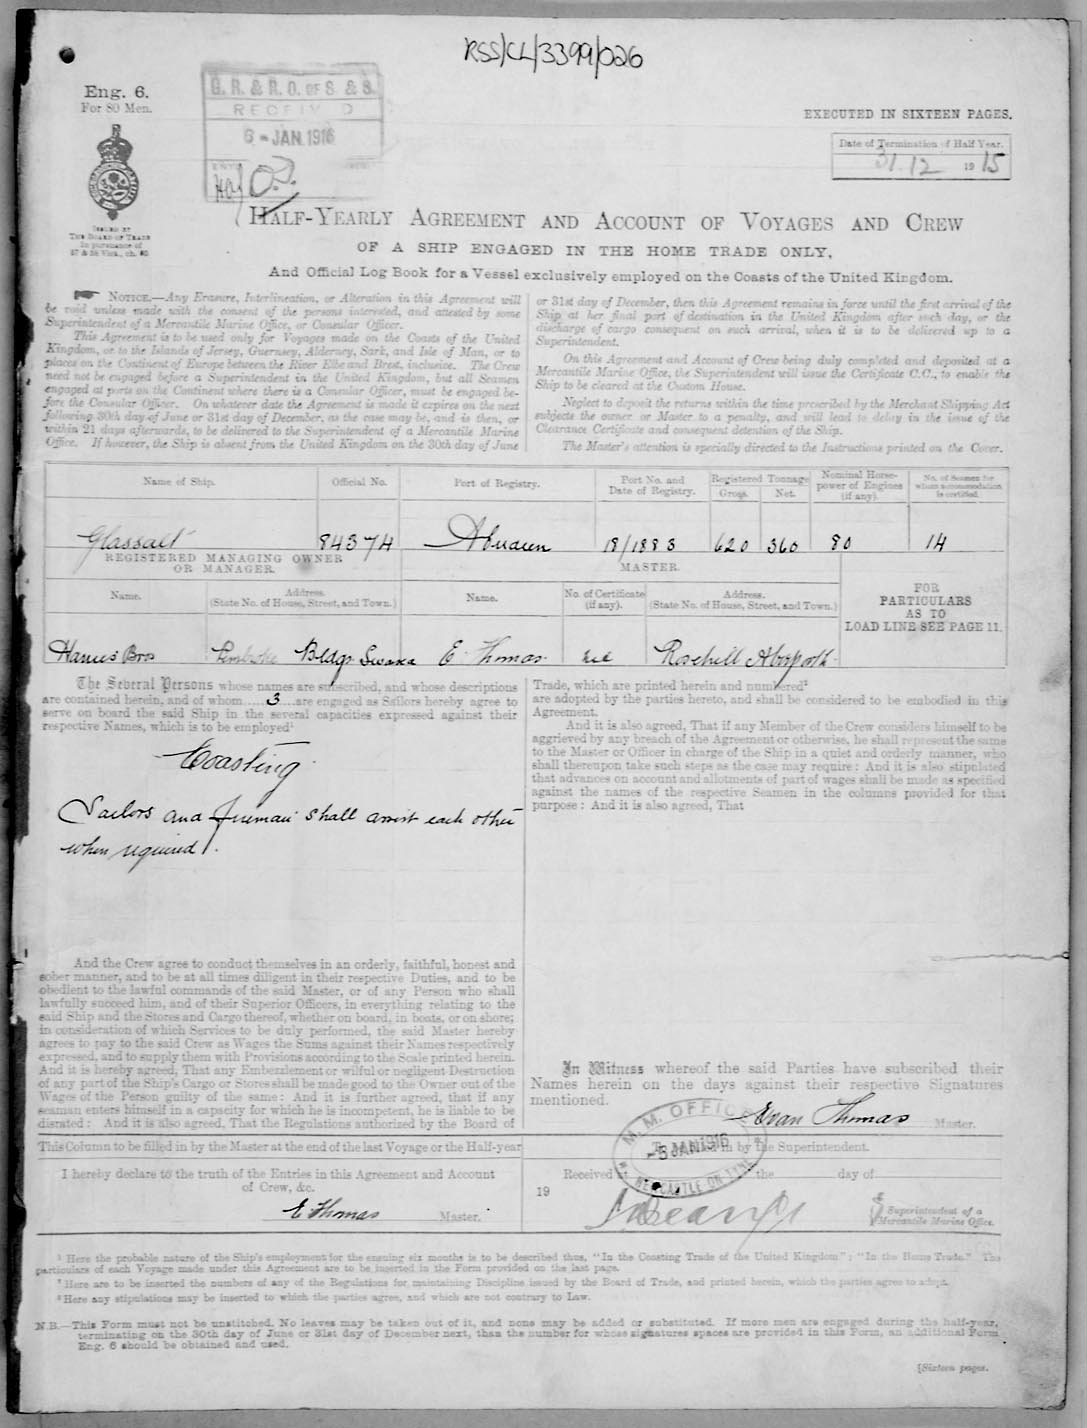 RSS/CL/3399/026
Eng. 6.
For 80 Men.
ISSUED BY
THE BOARD OF TRADE
In pursuance of
57 & 58 Vict., ch. 60
G. R. & R. O. OF S. & S.
RECEIVED
6 - JAN. 1916
EXECUTED IN SIXTEEN PAGES.
Date of Termination of Half Year.
31.12 1915
HALF-YEARLY AGREEMENT AND ACCOUNT OF VOYAGES AND CREW
OF A SHIP ENGAGED IN THE HOME TRADE ONLY,
And Official Log Book for a Vessel exclusively employed on the Coasts of the United Kingdom.
NOTICE.—Any Erasure, Interlineation, or Alteration in this Agreement will
be void unless made with the consent of the persons interested, and attested by some
Superintendent of a Mercantile Marine Office, or Consular Officer.
This Agreement is to be used only for Voyages made on the Coasts of the United
Kingdom, or to the Islands of Jersey, Guernsey, Alderney, Sark, and Isle of Man, or to
places on the Continent of Europe between the River Elbe and Brest, inclusive. The Crew
need not be engaged before a Superintendent in the United Kingdom, but all Seamen
engaged at ports on the Continent where there is a Consular Officer, must be engaged be-
fore the Consular Officer. On whatever date the Agreement is made it expires on the next
following 30th day of June or 31st day of December, as the case may be, and is then, or
within 21 days afterwards, to be delivered to the Superintendent of a Mercantile Marine
Office. If however, the Ship is absent from the United Kingdom on the 30th day of June
or 31st day of December, then this Agreement remains in force until the first arrival of the
Ship at her final port of destination in the United Kingdom after such day, or the
discharge of cargo consequent on such arrival, when it is to be delivered up to a
Superintendent.
On this Agreement and Account of Crew being duly completed and deposited at a
Mercantile Marine Office, the Superintendent will issue the Certificate C.C., to enable the
Ship to be cleared at the Custom House.
Neglect to deposit the returns within the time prescribed by the Merchant Shipping Act
subjects the owner or Master to a penalty, and will lead to delay in the issue of the
Clearance Certificate and consequent detention of the Ship.
The Master's attention is specially directed to the Instructions printed on the Cover.
Name of Ship. Official No. Port of Registry. Port No. and Date of Registry. Registered Tonnage Gross. Net. Nominal Horse-power of Engines (if any). No. of Seamen for whom accommodation is certified.
Glassalt 84374 Aberdeen 18/1883 620 360 80 14
REGISTERED MANAGING OWNER
OR MANAGER.
MASTER.
Name. Address. (State No. of House, Street, and Town.) Name. No. of Certificate (if any). Address. (State No. of House, Street, and Town.)
FOR
PARTICULARS
AS TO
LOAD LINE SEE PAGE 11.
Harries Bros Pembroke Bldgs Swansea E. Thomas nil Rosehill Aberporth
The Several Persons whose names are subscribed, and whose descriptions
are contained herein, and of whom 3 are engaged as Sailors hereby agree to
serve on board the said Ship in the several capacities expressed against their
respective Names, which is to be employed¹
Coasting.
Sailors and Fireman shall assist each other
when required.
And the Crew agree to conduct themselves in an orderly, faithful, honest and
sober manner, and to be at all times diligent in their respective Duties, and to be
obedient to the lawful commands of the said Master, or of any Person who shall
lawfully succeed him, and of their Superior Officers, in everything relating to the
said Ship and the Stores and Cargo thereof, whether on board, in boats, or on shore;
in consideration of which Services to be duly performed, the said Master hereby
agrees to pay to the said Crew as Wages the Sums against their Names respectively
expressed, and to supply them with Provisions according to the Scale printed herein.
And it is hereby agreed, That any Embezzlement or wilful or negligent Destruction
of any part of the Ship's Cargo or Stores shall be made good to the Owner out of the
Wages of the Person guilty of the same: And it is further agreed, that if any
seaman enters himself in a capacity for which he is incompetent, he is liable to be
disrated: And it is also agreed, That the Regulations authorized by the Board of
Trade, which are printed herein and numbered²
are adopted by the parties hereto, and shall be considered to be embodied in this
Agreement.
And it is also agreed, That if any Member of the Crew considers himself to be
aggrieved by any breach of the Agreement or otherwise, he shall represent the same
to the Master or Officer in charge of the Ship in a quiet and orderly manner, who
shall thereupon take such steps as the case may require: And it is also stipulated
that advances on account and allotments of part of wages shall be made as specified
against the names of the respective Seamen in the columns provided for that
purpose: And it is also agreed, That
In Witness whereof the said Parties have subscribed their
Names herein on the days against their respective Signatures
mentioned.
Evan Thomas Master.
This Column to be filled in by the Master at the end of the last Voyage or the Half-year
I hereby declare to the truth of the Entries in this Agreement and Account
of Crew, &c.
E Thomas Master.
M. M. OFFICE
JAN 1916
NEWCASTLE ON TYNE
in by the Superintendent.
Received at the day of
19
Superintendent of a
Mercantile Marine Office.
¹ Here the probable nature of the Ship's employment for the ensuing six months is to be described thus, "In the Coasting Trade of the United Kingdom"; "In the Home Trade." The
particulars of each Voyage made under this Agreement are to be inserted in the Form provided on the last page.
² Here are to be inserted the numbers of any of the Regulations for maintaining Discipline issued by the Board of Trade, and printed herein, which the parties agree to adopt.
³ Here any stipulations may be inserted to which the parties agree, and which are not contrary to Law.
N.B.—This Form must not be unstitched. No leaves may be taken out of it, and none may be added or substituted. If more men are engaged during the half-year,
terminating on the 30th day of June or 31st day of December next, than the number for whose signatures spaces are provided in this Form, an additional Form
Eng. 6 should be obtained and used.
[Sixteen pages.